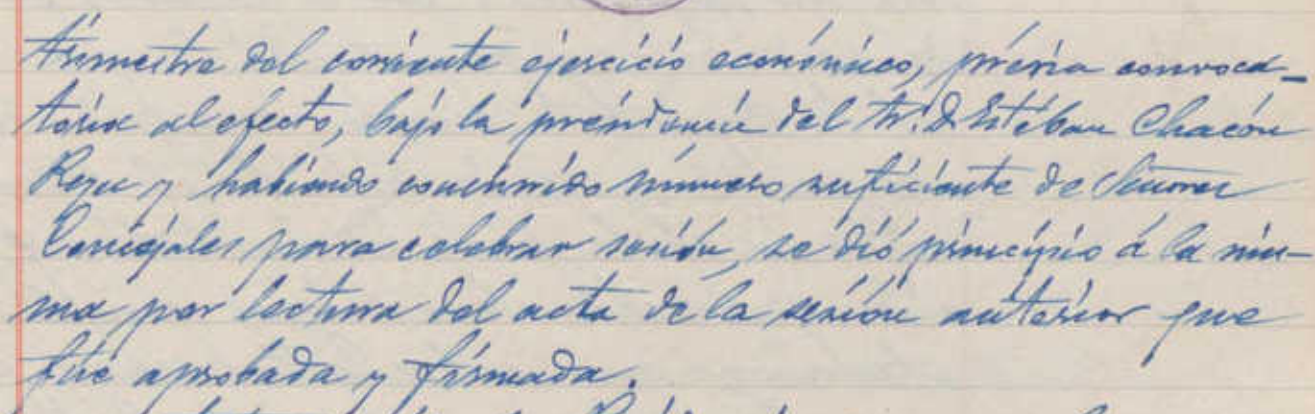 trimestre del corriente ejercicio económico, prévia convoca-
toria al efecto, bajo la presidencia del Sr. D. Estéban Chacón
y habiendo concurrido número suficiente de Señores
Concejales para celebrar sesión, se dió principio á la mis-
ma por lectura del acta de la sesión anterior que
fué aprobada y firmada.